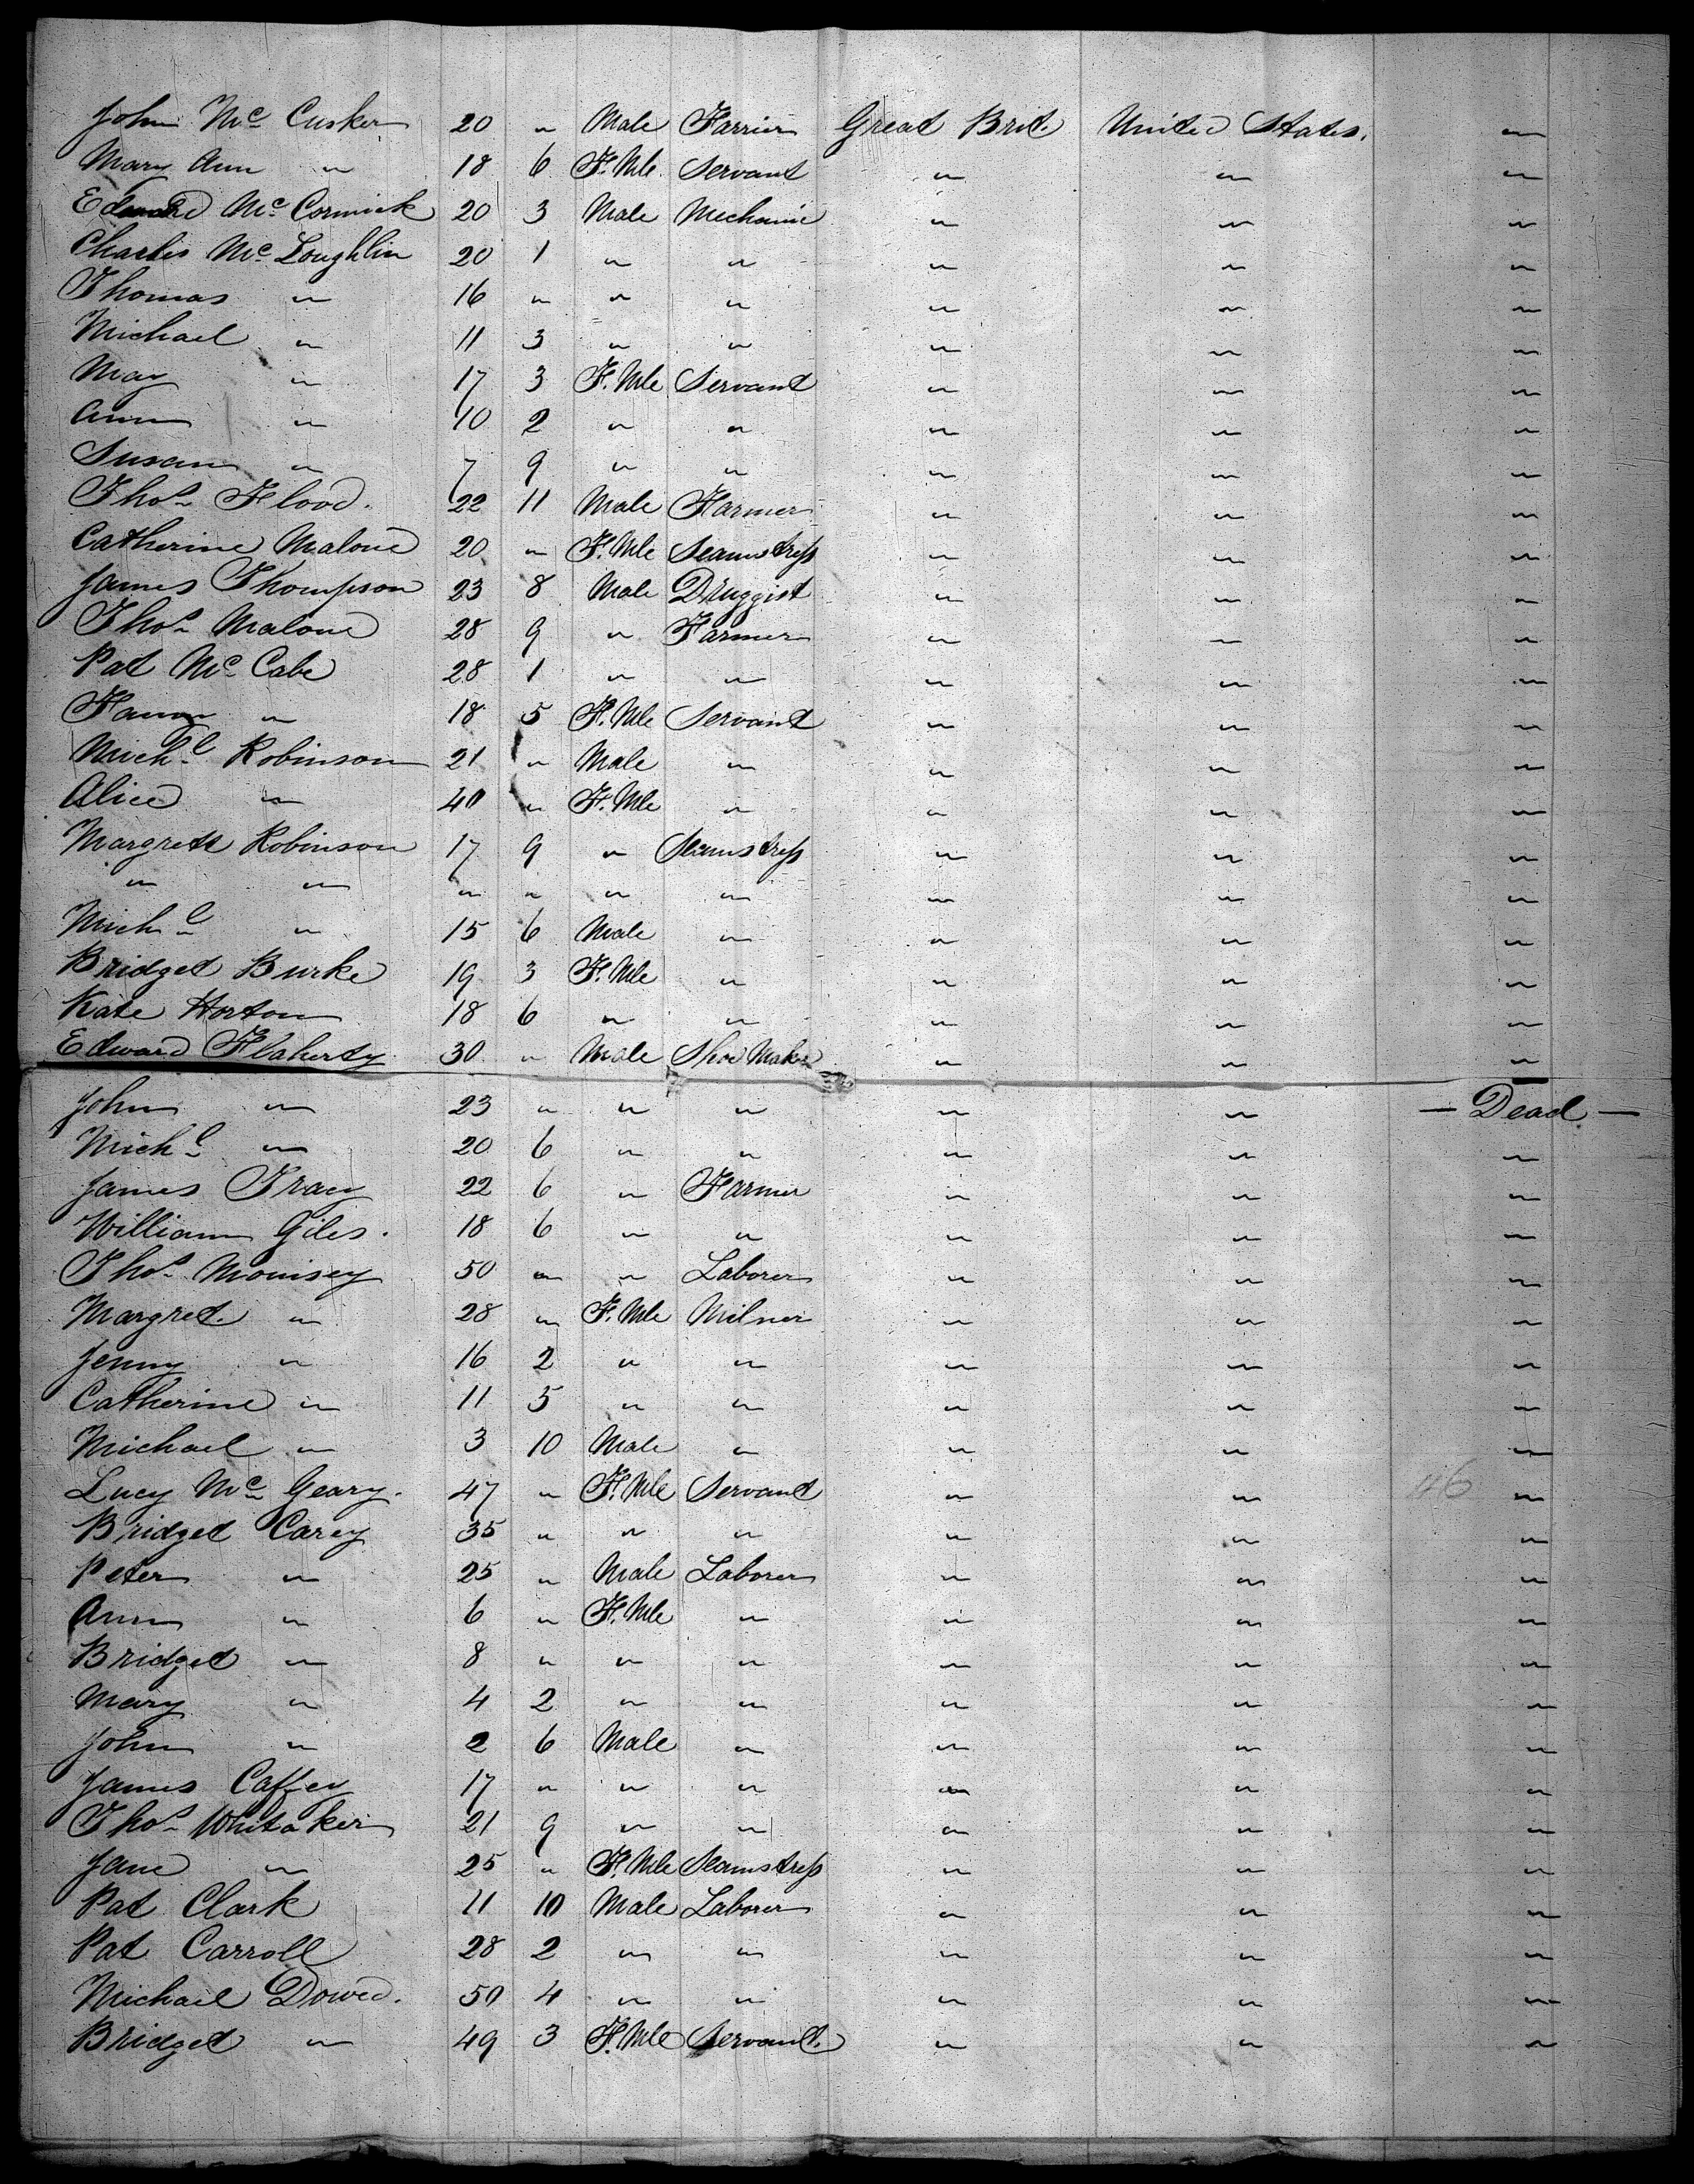 John Mc Cusker 20 " Male Farrier Great Brit. United States. "
Mary Ann " 18 6 F. Mle. Servant " " "
Edward Mc Cormick 20 3 Male Mechanic " " "
Charles Mc Loughlin 20 1 " " " " "
Thomas " 16 " " " " " "
Michael " 11 3 " " " " "
May " 17 3 F. Mle Servant " " "
Ann " 10 2 " " " " "
Susan " 7 9 " " " " "
Thos Flood. 22 11 Male Farmer " " "
Catherine Malone 20 " F. Mle Seamstress " " "
James Thompson 23 8 Male Druggist " " "
Thos Malone 28 9 " Farmer " " "
Pat Mc Cabe 28 1 " " " " "
Fanny " 18 5 F. Mle Servant " " "
Michl Robinson 21 " Male " " " "
Alice " 40 " F. Mle " " " "
Margrett Robinson 17 9 " Seamstress " " "
" " " " " " " " "
Michl " 15 6 Male " " " "
Bridget Burke 19 3 F. Mle " " " "
Kate Horton 18 6 " " " " "
Edward Flaherty 30 " Male Shoe Maker " " "
John " 23 " " " " " — Dead —
Michl " 20 6 " " " " "
James Tracy 22 6 " Farmer " " "
William Giles. 18 6 " " " " "
Thos Mouisey 50 " " Laborer " " "
Margret. " 28 " F. Mle Milner " " "
Jenny " 16 2 " " " " "
Catherine " 11 5 " " " " "
Michael " 3 10 Male " " " "
Lucy Mc Geary. 47 " F. Mle Servant " " 46 "
Bridget Carey 35 " " " " " "
Peter " 25 " Male Laborer " " "
Ann " 6 " F. Mle " " " "
Bridget " 8 " " " " " "
Mary " 4 2 " " " " "
John " 2 6 Male " " " "
James Caffey 17 " " " " " "
Thos Whitaker 21 9 " " " " "
Jane " 25 " F. Mle Seamstress " " "
Pat Clark 11 10 Male Laborer " " "
Pat Carroll 28 2 " " " " "
Michael Dowed. 50 4 " " " " "
Bridget " 49 3 F. Mle Servant. " " "